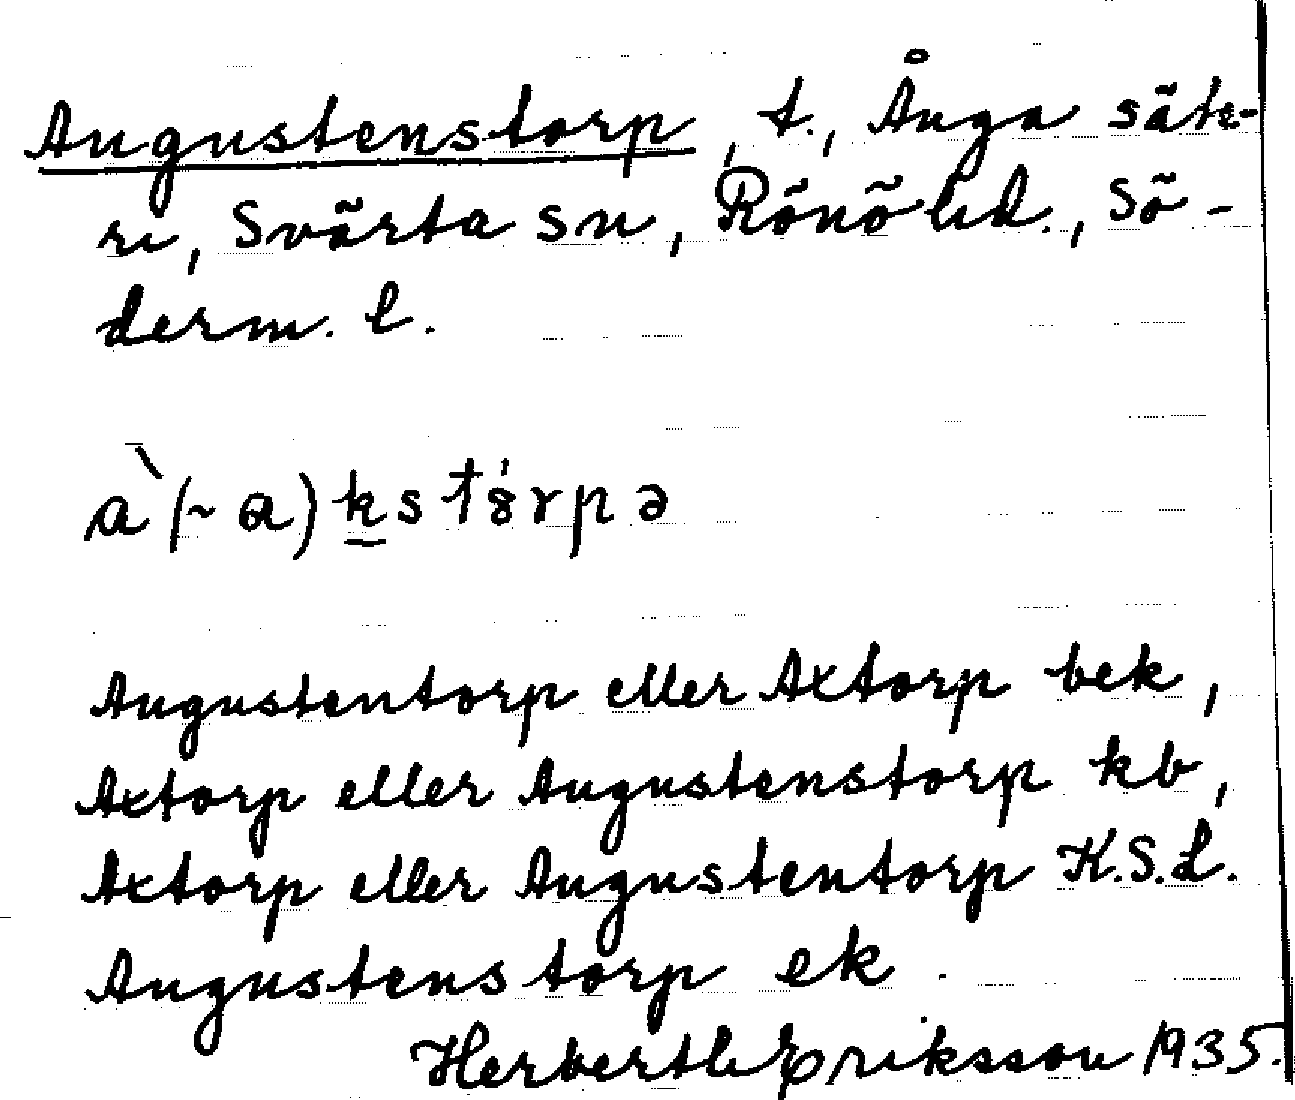 Augustenstorp, t., Ånga säte-
ri, Svärta sn, Rönö hd., Sö-
derm. l.
à (~ ɑ) k s t ȣ́ r p ə
Augustentorp eller Axtorp bek,
Axtorp eller Augustenstorp kb,
Axtorp eller Augustentorp K.S.L.
Augustenstorp ek.
Herberth Eriksson 1935.